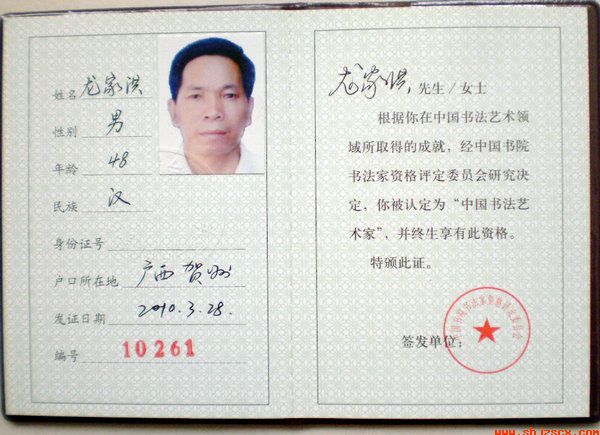 姓名 龙家洪
性别 男
年龄 48
民族 汉
身份证号
户口所在地 广西 贺州
发证日期 2010.3.28.
编号 10261
龙家洪 先生/女士
根据你在中国书法艺术领
域所取得的成就，经中国书院
书法家资格评定委员会研究决
定，你被认定为“中国书法艺
术家”，并终生享有此资格。
特颁此证。
签发单位：
中国书院书法家资格评定委员会
www.sbjzscx.com